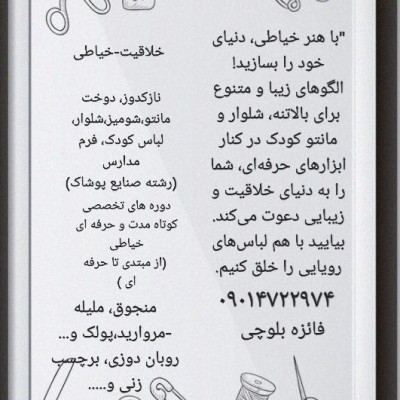 "با هنر خیاطی، دنیای
خود را بسازید!
الگوهای زیبا و متنوع
برای بالاتنه، شلوار و
مانتو کودک در کنار
ابزارهای حرفه‌ای، شما
را به دنیای خلاقیت و
زیبایی دعوت می‌کند.
بیایید با هم لباس‌های
رویایی را خلق کنیم.
۰۹۰۱۴۷۲۲۹۷۴
فائزه بلوچی
خلاقیت-خیاطی
نازکدوز، دوخت
مانتو،شومیز،شلوار،
لباس کودک، فرم
مدارس
(رشته صنایع پوشاک)
دوره های تخصصی
کوتاه مدت و حرفه ای
خیاطی
(از مبتدی تا حرفه
ای )
منجوق، ملیله
-مروارید،پولک و...
روبان دوزی، برچسب
زنی و.....